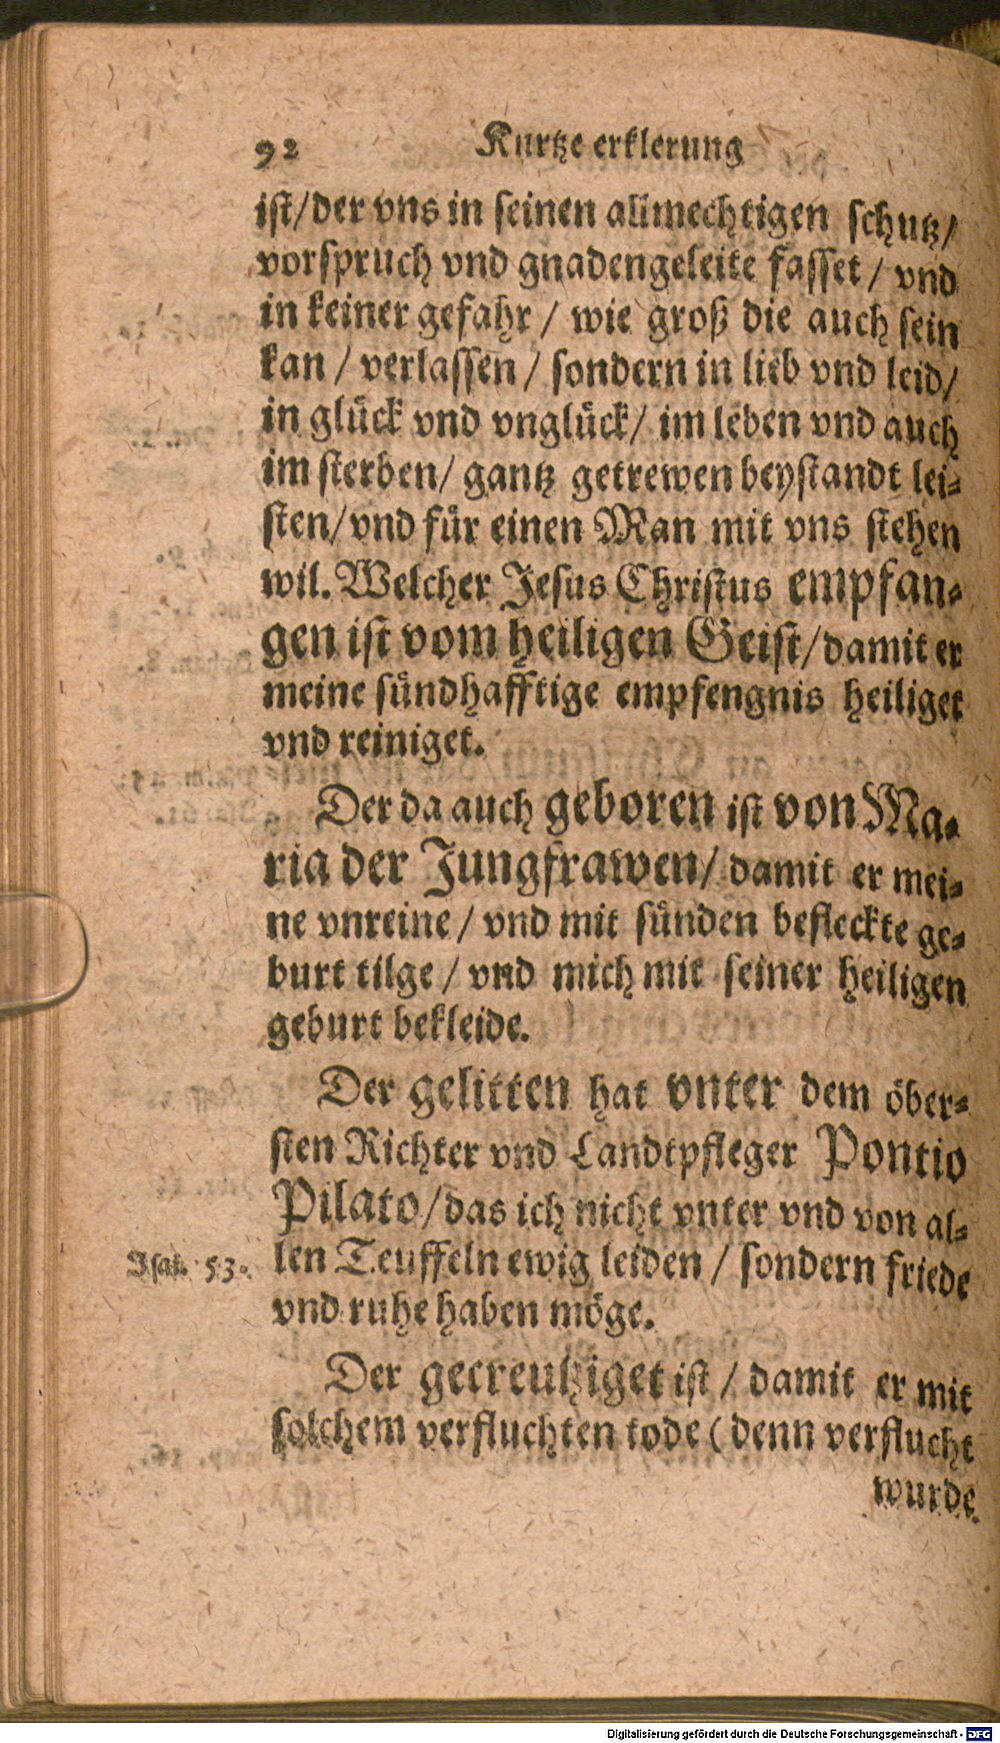 92 Kurtze erklerung
ist/der vns in seinen allmechtigen schutz/
vorspruch vnd gnadengeleite fasset / vnd
in keiner gefahr / wie groß die auch sein
kan / verlassen / sondern in lieb vnd leid/
in glück vnd vnglück/ im leben vnd auch
im sterben/ gantz getrewen beystandt lei-
sten/vnd für einen Man mit vns stehen
wil. Welcher Jesus Christus empfan-
gen ist vom heiligen Geist/damit er
meine sündhafftige empfengnis heiliget
vnd reiniget.
Der da auch geboren ist von Ma-
ria der Jungfrawen/ damit er mei-
ne vnreine / vnd mit sünden befleckte ge-
burt tilge / vnd mich mit seiner heiligen
geburt bekleide.
Der gelitten hat vnter dem öber-
sten Richter vnd Landtpfleger Pontio
Pilato/das ich nicht vnter vnd von al-
Isai. 53. len Teuffeln ewig leiden / sondern friede
vnd ruhe haben möge.
Der gecreutziget ist / damit er mit
solchem verfluchten tode (denn verflucht
wurde
Digitalisierung gefördert durch die Deutsche Forschungsgemeinschaft - DFG